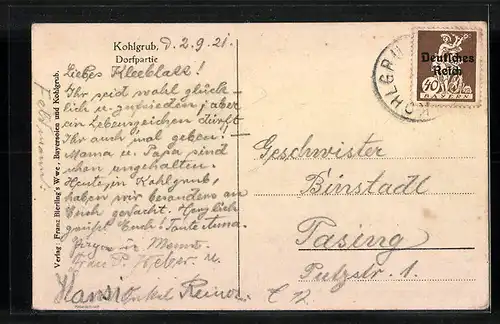 Kohlgrub, d. 2.9.21.
Dorfpartie
Liebes Kleeblatt!
Ihr seid wohl glück-
lich u. zufrieden; aber
ein Lebenszeichen dürft
Ihr auch mal geben! -
Mama u. Papa sind
schon ungehalten.
Heute, in Kohlgrub,
haben wir besonders an
Euch gedacht. Herzlich
grüßt Euch! Tante Anna.
in
u.
Hansi Onkel
Verlag: Franz Bierling's Wwe., Bayersoien und Kohlgrub.
Deutsches
Reich
40 40
BAYERN
KOHLGRUB
Geschwister
Binstadt
Pasing.
Putzstr. 1.